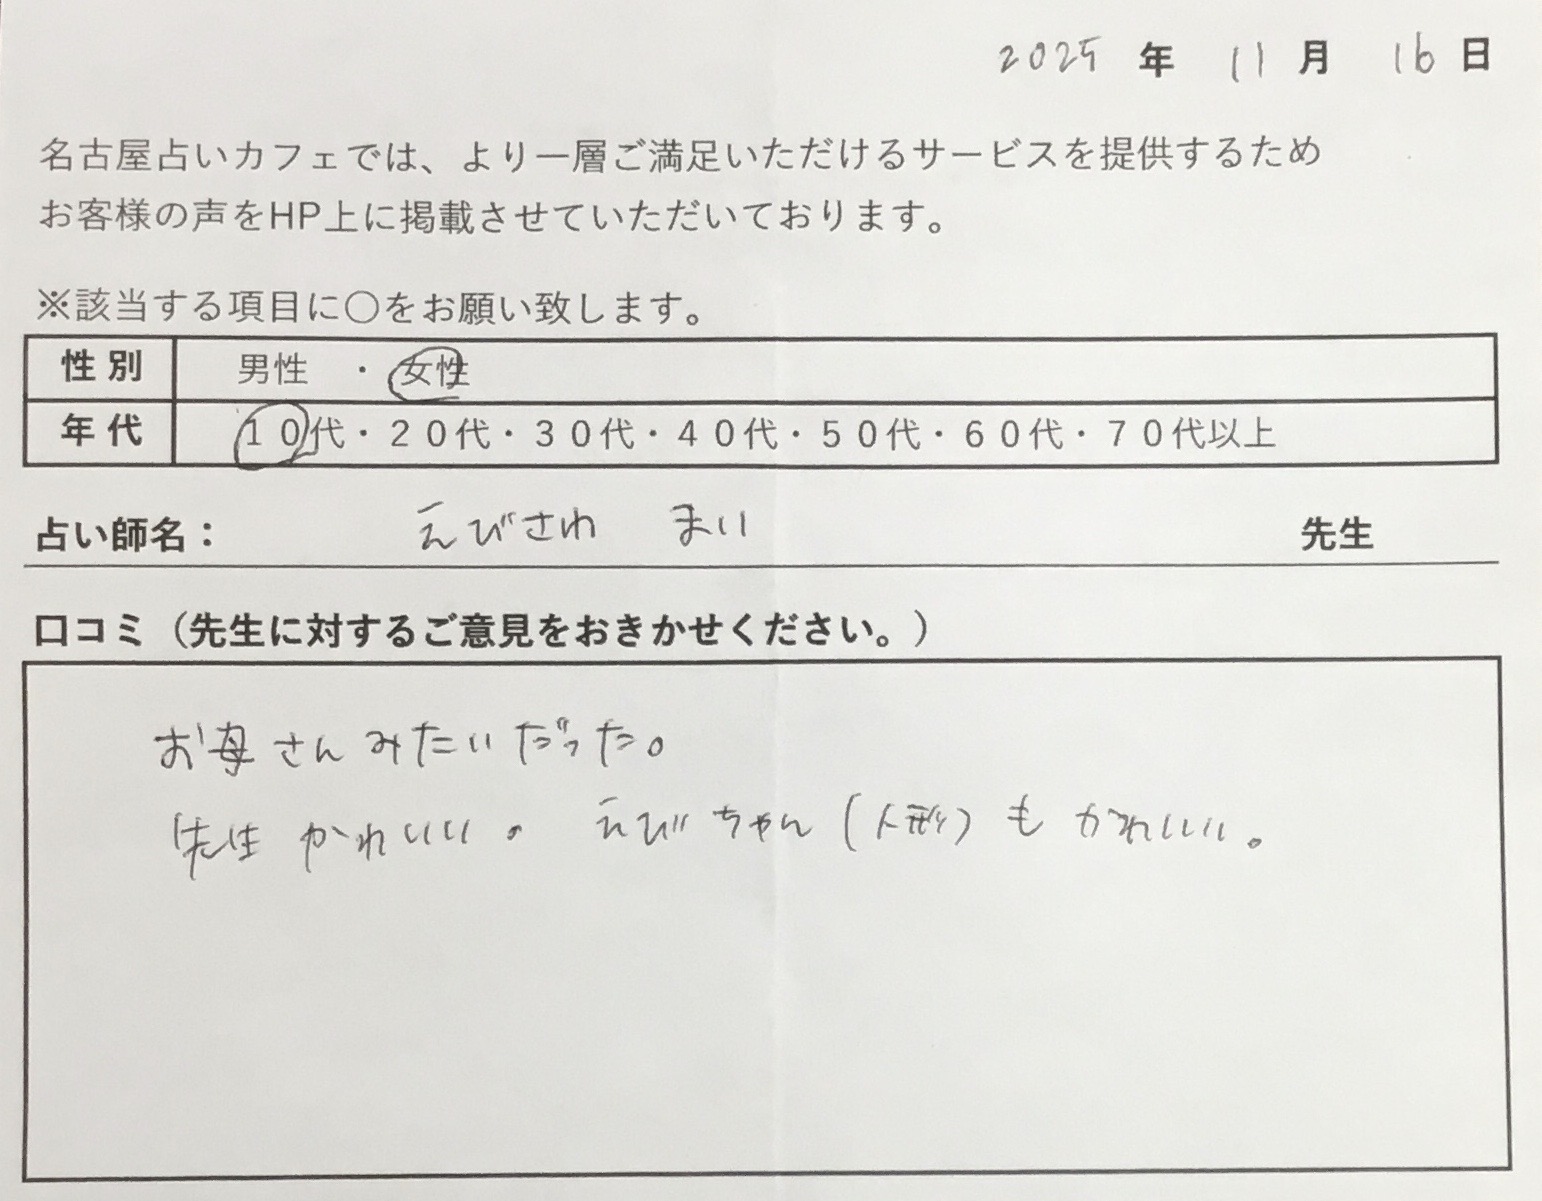 2025 年 11 月 16 日
名古屋占いカフェでは、より一層ご満足いただけるサービスを提供するため
お客様の声をHP上に掲載させていただいております。
※該当する項目に○をお願い致します。
性別 男性 ・ 女性
年代 10代・20代・30代・40代・50代・60代・70代以上
占い師名： えびさわ まい 先生
口コミ（先生に対するご意見をおきかせください。）
お母さんみたいだった。
先生かわいい。えびちゃん(人形)もかわいい。